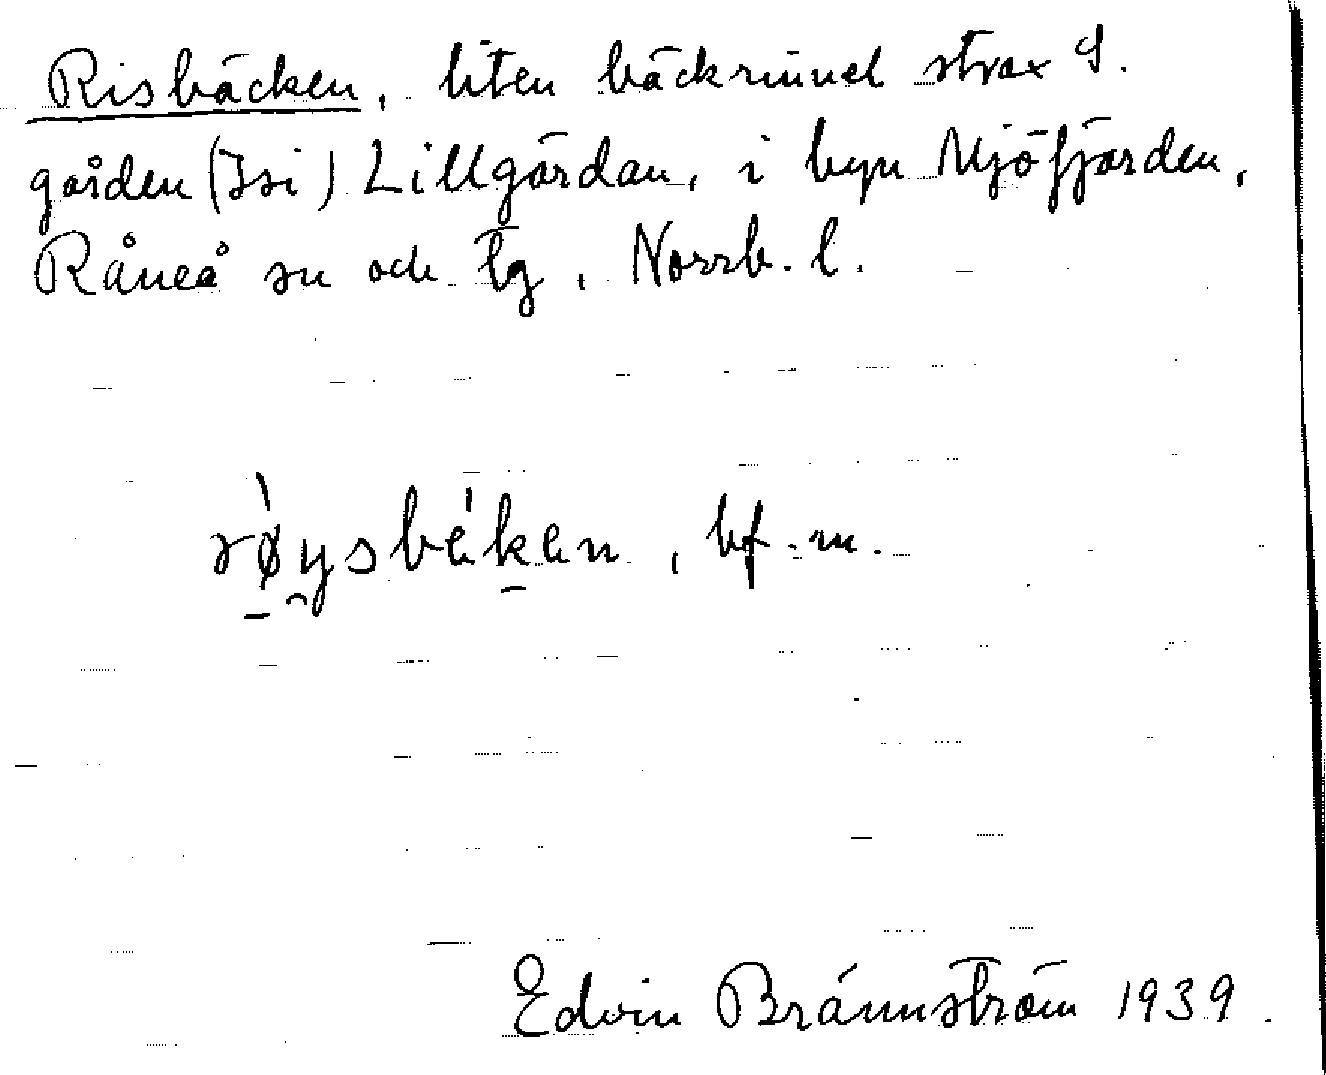 Risbäcken, liten bäckrännel strax S.
gården (Isi) Lillgärdan, i byn Mjöfjärden,
Råneå sn och tg, Norrb. l.
røysbékan, bf. m.
Edvin Brännström 1939.